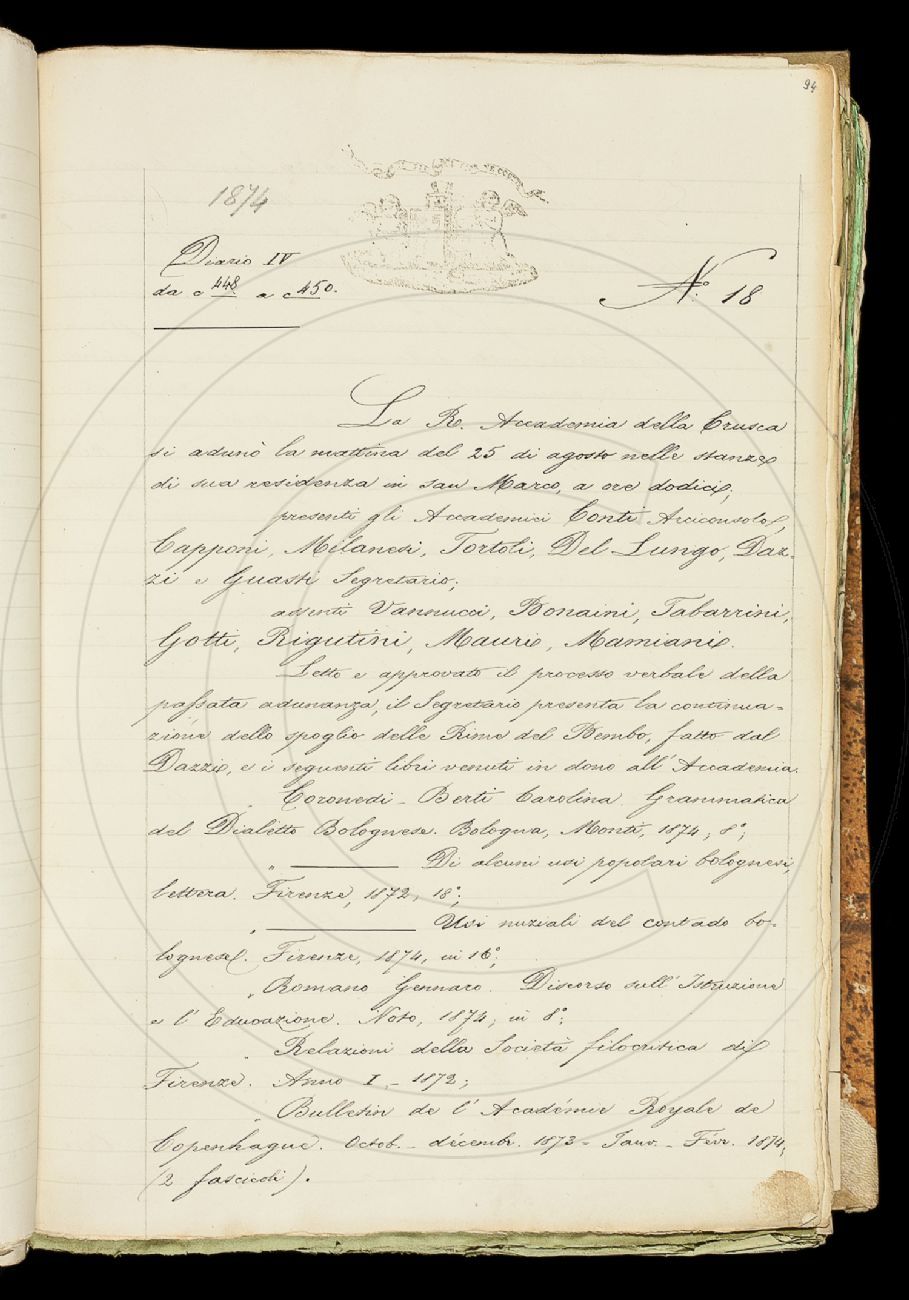 94
1874
Diario IV
da c 448 a c 450.
N.° 18
La R. Accademia della Crusca
si adunò la mattina del 25 di agosto nelle stanze
di sua residenza in San Marco, a ore dodici;
presenti gli Accademici Conti Arciconsolo,
Capponi, Milanesi, Tortoli, Del Lungo, Daz-
zi e Guasti Segretario;
assenti Vannucci, Bonaini, Tabarrini,
Gotti, Rigutini, Mauri, Mamiani.
Letto e approvato il processo verbale della
passata adunanza, il Segretario presenta la continua=
zione dello spoglio delle Rime del Bembo, fatto dal
Dazzi, e i seguenti libri venuti in dono all'Accademia.
Coronedi - Berti Carolina. Grammatica
del Dialetto Bolognese. Bologna, Monti, 1874, 8°;
" ——— Di alcuni usi popolari bolognesi,
lettera. Firenze, 1872, 18°;
" ——— Usi nuziali del contado bo-
lognese. Firenze, 1874, in 16°;
" Romano Gennaro. Discorso sull'Istruzione
e l'Educazione. Noto, 1874, in 8°;
" Relazioni della Società filocritica di
Firenze. Anno I. - 1872;
" Bulletin de l'Académie Royale de
Copenhague. Octob. - décembr. 1873 - Janv. - Févr. 1874,
(2 fascicoli).